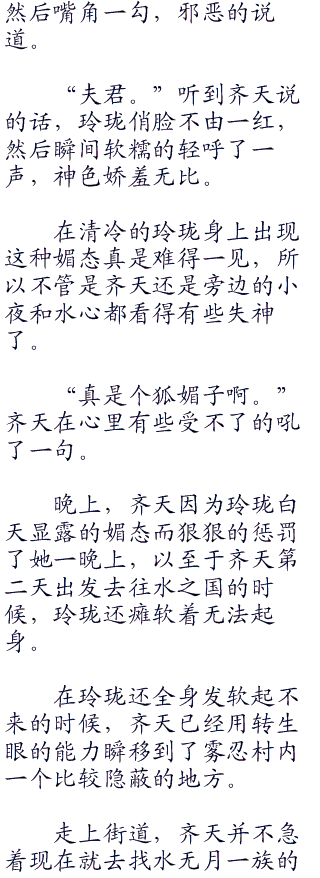 然后嘴角一勾，邪恶的说
道。
“夫君。”听到齐天说
的话，玲珑俏脸不由一红，
然后瞬间软糯的轻呼了一
声，神色娇羞无比。
在清冷的玲珑身上出现
这种媚态真是难得一见，所
以不管是齐天还是旁边的小
夜和水心都看得有些失神
了。
“真是个狐媚子啊。”
齐天在心里有些受不了的吼
了一句。
晚上，齐天因为玲珑白
天显露的媚态而狠狠的惩罚
了她一晚上，以至于齐天第
二天出发去往水之国的时
候，玲珑还瘫软着无法起
身。
在玲珑还全身发软起不
来的时候，齐天已经用转生
眼的能力瞬移到了雾忍村内
一个比较隐蔽的地方。
走上街道，齐天并不急
着现在就去找水无月一族的